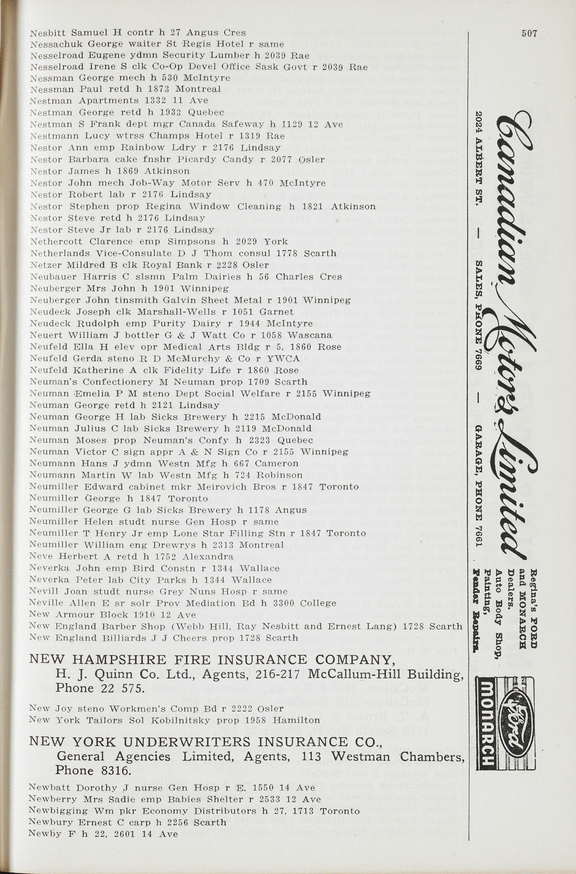 507
Nesbitt Samuel H contr h 27 Angus Cres
Nessachuk George waiter St Regis Hotel r same
Nesselroad Eugene ydmn Security Lumber h 2039 Rae
Nesselroad Irene S clk Co-Op Devel Office Sask Govt r 2039 Rae
Nessman George mech h 530 McIntyre
Nessman Paul retd h 1873 Montreal
Nestman Apartments 1332 11 Ave
Nestman George retd h 1933 Quebec
Nestman S Frank dept mgr Canada Safeway h 1129 12 Ave
Nestmann Lucy wtrss Champs Hotel r 1319 Rae
Nestor Ann emp Rainbow Ldry r 2176 Lindsay
Nestor Barbara cake fnshr Picardy Candy r 2077 Osler
Nestor James h 1869 Atkinson
Nestor John mech Job-Way Motor Serv h 470 McIntyre
Nestor Robert lab r 2176 Lindsay
Nestor Stephen prop Regina Window Cleaning h 1821 Atkinson
Nestor Steve retd h 2176 Lindsay
Nestor Steve Jr lab r 2176 Lindsay
Nethercott Clarence emp Simpsons h 2029 York
Netherlands Vice-Consulate D J Thom consul 1778 Scarth
Netzer Mildred B clk Royal Bank r 2228 Osler
Neubauer Harris C slsmn Palm Dairies h 56 Charles Cres
Neuberger Mrs John h 1901 Winnipeg
Neuberger John tinsmith Galvin Sheet Metal r 1901 Winnipeg
Neudeck Joseph clk Marshall-Wells r 1051 Garnet
Neudeck Rudolph emp Purity Dairy r 1944 McIntyre
Neuert William J bottler G & J Watt Co r 1058 Wascana
Neufeld Ella H elev opr Medical Arts Bldg r 5, 1860 Rose
Neufeld Gerda steno R D McMurchy & Co r YWCA
Neufeld Katherine A clk Fidelity Life r 1860 Rose
Neuman's Confectionery M Neuman prop 1709 Scarth
Neuman Emelia P M steno Dept Social Welfare r 2155 Winnipeg
Neuman George retd h 2121 Lindsay
Neuman George H lab Sicks Brewery h 2215 McDonald
Neuman Julius C lab Sicks Brewery h 2119 McDonald
Neuman Moses prop Neuman's Confy h 2323 Quebec
Neuman Victor C sign appr A & N Sign Co r 2155 Winnipeg
Neumann Hans J ydmn Westn Mfg h 667 Cameron
Neumann Martin W lab Westn Mfg h 724 Robinson
Neumiller Edward cabinet mkr Meirovich Bros r 1847 Toronto
Neumiller George h 1847 Toronto
Neumiller George G lab Sicks Brewery h 1178 Angus
Neumiller Helen studt nurse Gen Hosp r same
Neumiller T Henry Jr emp Lone Star Filling Stn r 1847 Toronto
Neumiller William eng Drewrys h 2313 Montreal
Neve Herbert A retd h 1752 Alexandra
Neverka John emp Bird Constn r 1344 Wallace
Neverka Peter lab City Parks h 1344 Wallace
Nevill Joan studt nurse Grey Nuns Hosp r same
Neville Allen E sr solr Prov Mediation Bd h 3300 College
New Armour Block 1910 12 Ave
New England Barber Shop (Webb Hill, Ray Nesbitt and Ernest Lang) 1728 Scarth
New England Billiards J J Cheers prop 1728 Scarth
NEW HAMPSHIRE FIRE INSURANCE COMPANY,
H. J. Quinn Co. Ltd., Agents, 216-217 McCallum-Hill Building,
Phone 22 575.
New Joy steno Workmen's Comp Bd r 2222 Osler
New York Tailors Sol Kobilnitsky prop 1958 Hamilton
NEW YORK UNDERWRITERS INSURANCE CO.,
General Agencies Limited, Agents, 113 Westman Chambers,
Phone 8316.
Newbatt Dorothy J nurse Gen Hosp r E, 1550 14 Ave
Newberry Mrs Sadie emp Babies Shelter r 2533 12 Ave
Newbigging Wm pkr Economy Distributors h 27, 1713 Toronto
Newbury Ernest C carp h 2256 Scarth
Newby F h 22, 2601 14 Ave
Canadian Motors Limited
2024 ALBERT ST. — SALES, PHONE 7669 — GARAGE, PHONE 7661
Regina's FORD
and MONARCH
Dealers.
Auto Body Shop,
Painting,
Fender Repairs.
Ford
MONARCH